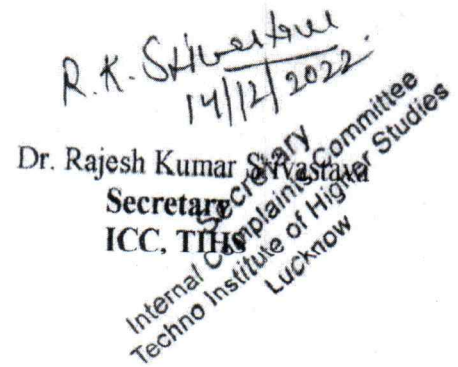 R.K. Srivastava
14/12/2022.
Dr. Rajesh Kumar Srivastava
Secretary
ICC, TIHS
Secretary
Internal Complaints Committee
Techno Institute of Higher Studies
Lucknow